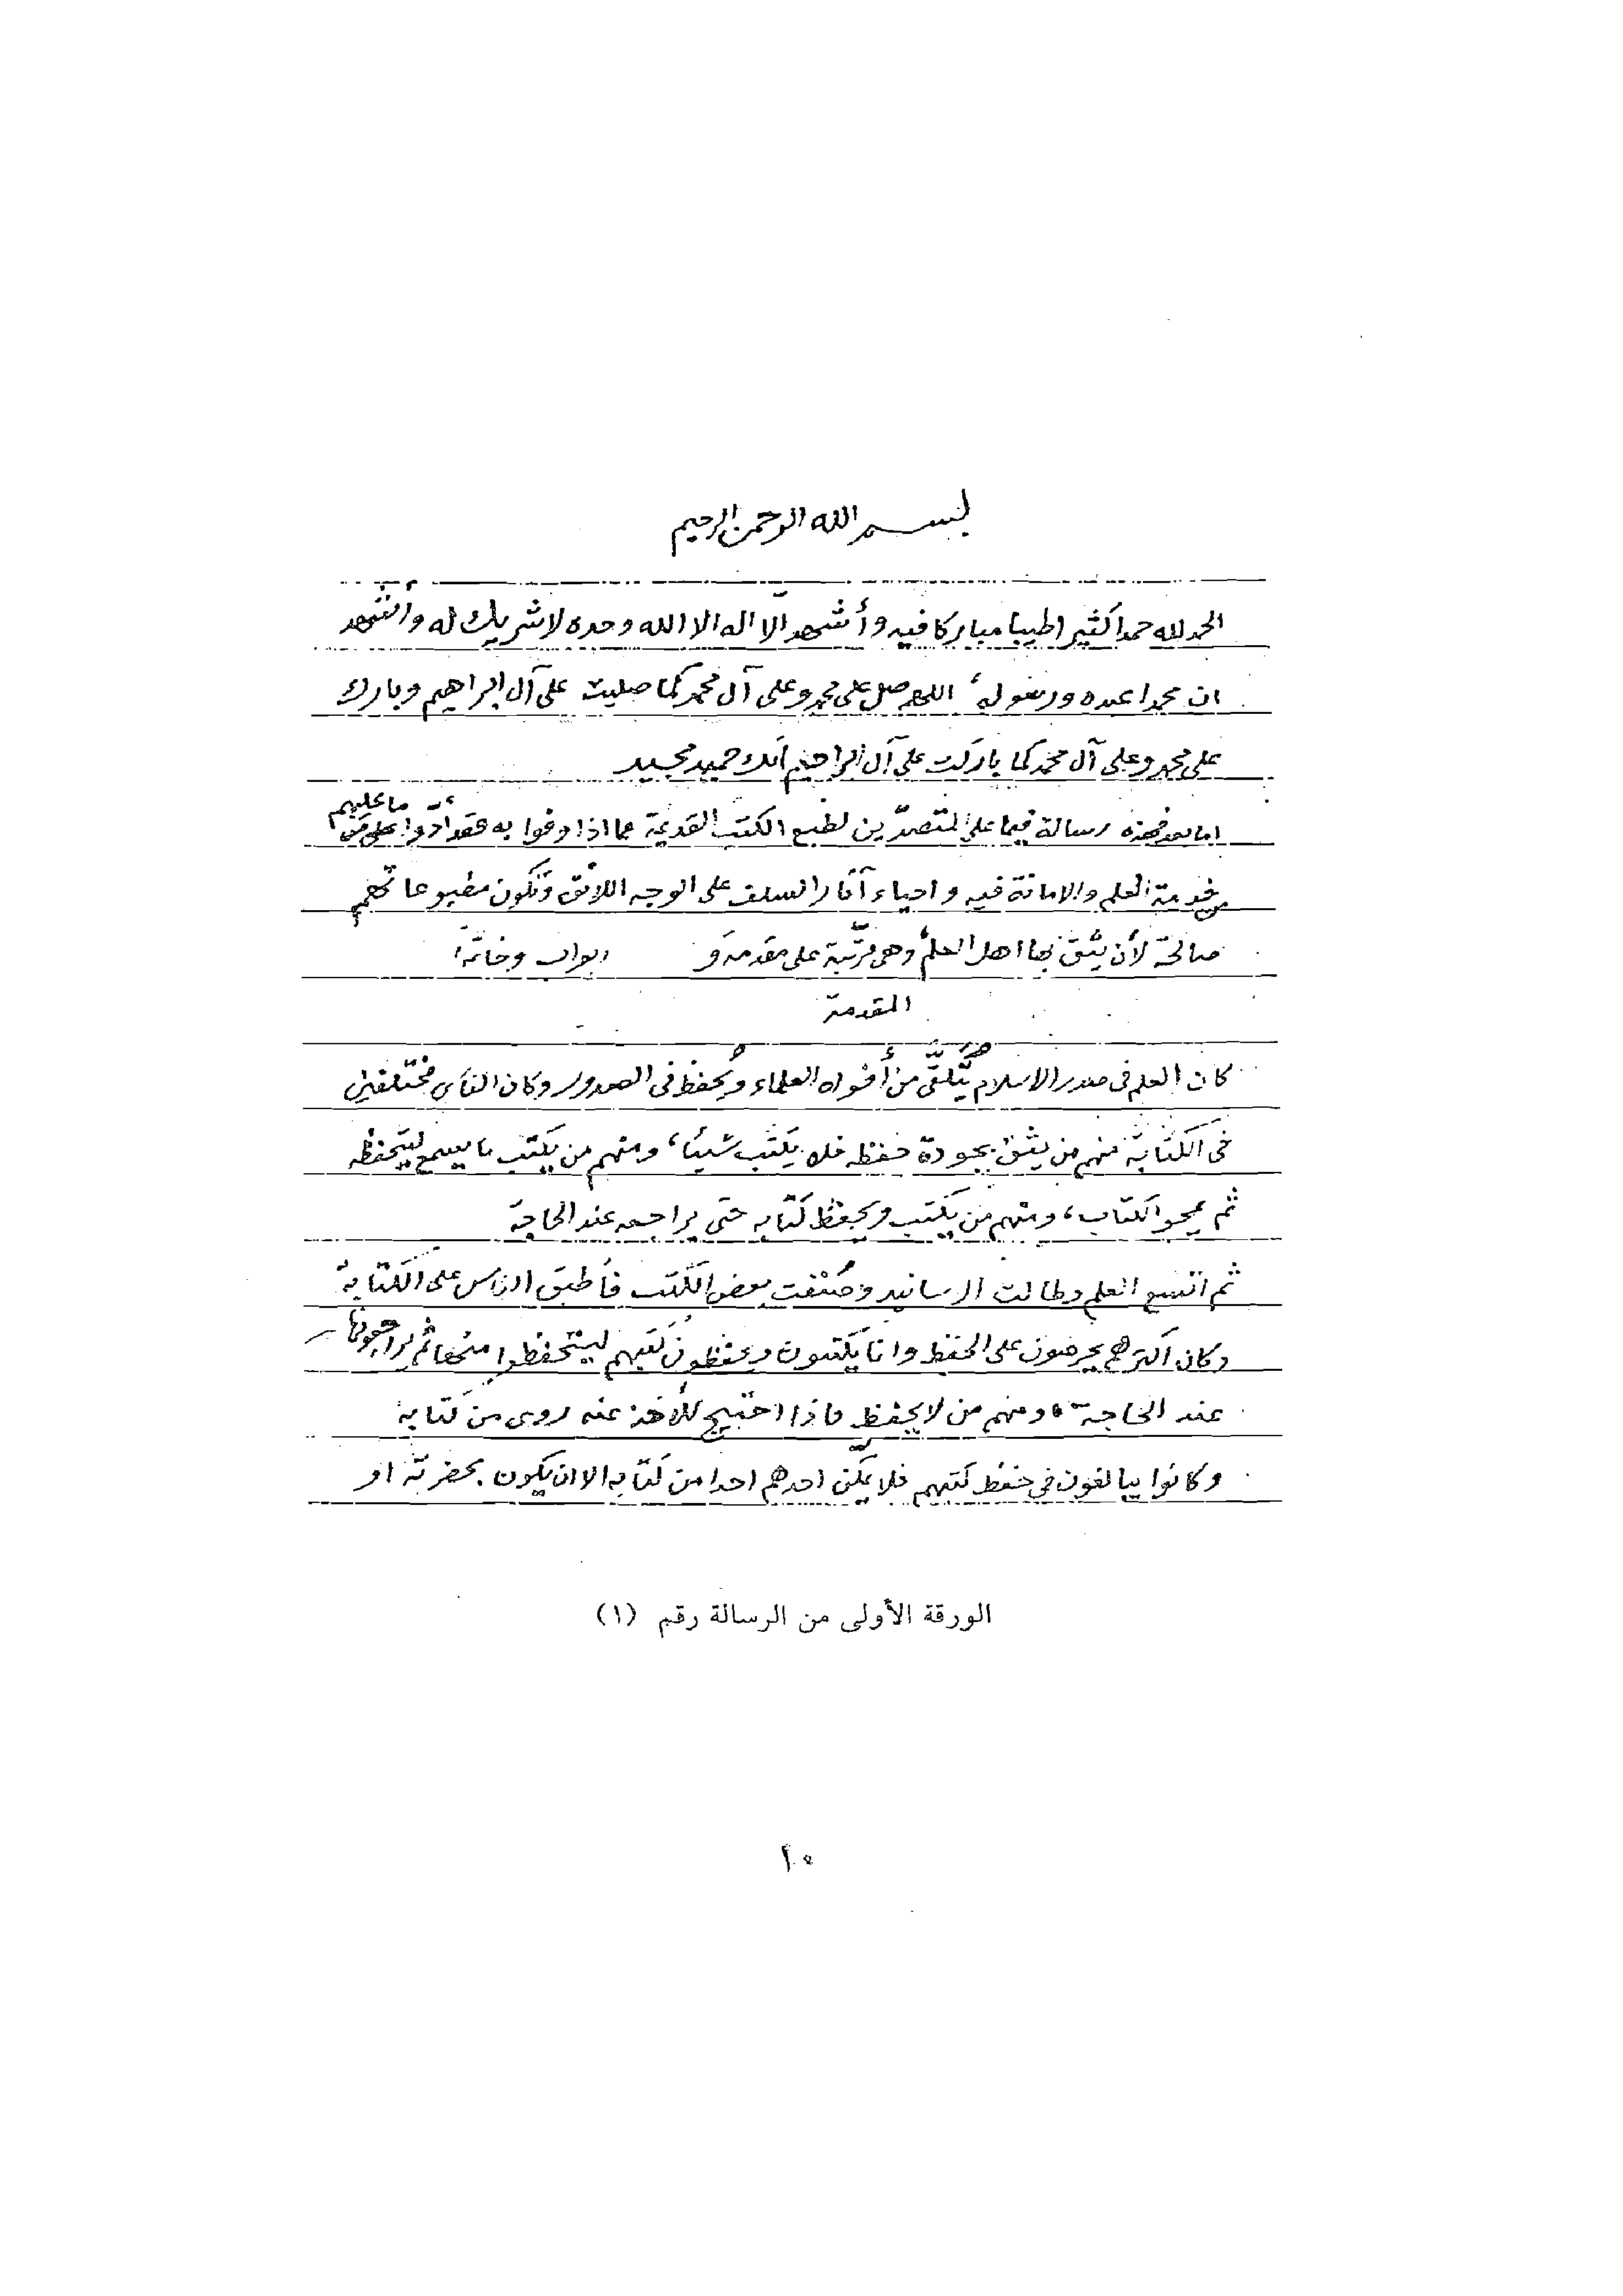 بسم الله الرحمن الرحيم
الحمد لله حمدا كثيرا طيبا مباركا فيه وأشهد ألّا اله الا الله وحده لا شريك له وأشهد
ان محمدا عبده ورسوله، اللهم صل على محمد وعلى آل محمد كما صليت على آل ابراهيم وبارك
على محمد وعلى آل محمد كما باركت على آل ابراهيم انك حميد مجيد
اما بعد فهذه رسالة فيما على المتصدّين لطبع الكتب القديمة مما اذا وفوا به فقد أدوا ما عليهم من
خدمة العلم والامانة فيه و احياء آثار السلف على الوجه اللائق وتكون مطبوعاتهم
صالحة لأن يثق بها اهل العلم وهى مرتّبة على مقدمة و ابواب وخاتمة
المقدمة
كان العلم فى صدر الاسلام يُتلقّى من أفواه العلماء ويُحفظ فى الصدور وكان الناس مختلفين
فى الكتابة فمنهم من يثق بجودة حفظه فلا يكتب شيئا، ومنهم من يكتب ما يسمع ليتحفظه
ثم يمحو الكتاب، ومنهم من يكتب ويحفظ كتابه حتى يراجعه عند الحاجة
ثم اتسع العلم وطالت الاسانيد وصُنّفت بعض الكتب فأطبق الناس على الكتابة
وكان اكثرهم يحرصون على الحفظ وانما يكتبون ويحفظون كتبهم ليتحفظوا منها ثم يراجعونها
عند الحاجة، ومنهم من لا يحفظ فاذا احتيج للأخذ عنه روى من كتابه
وكانوا يبالغون فى حفظ كتبهم فلا يمكّن احدهم احدا من كتابه الا ان يكون بحضرته او
الورقة الأولى من الرسالة رقم (١)